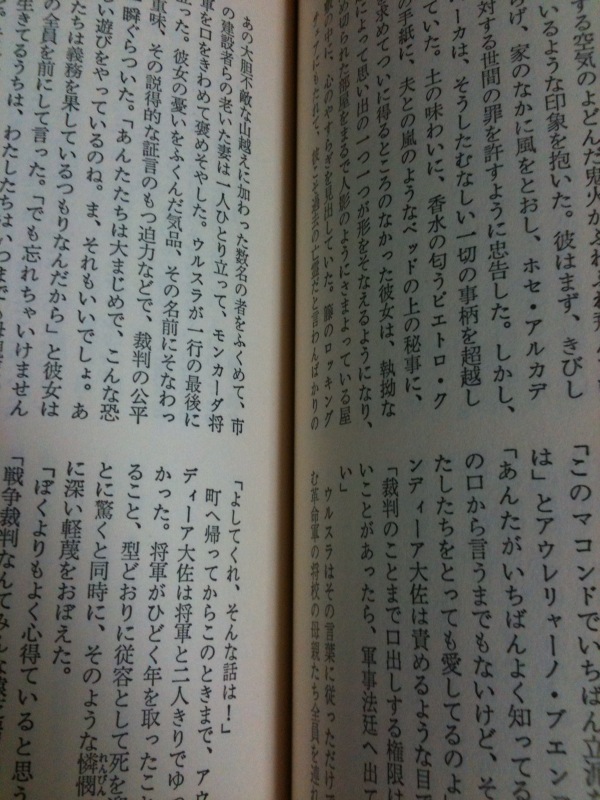 する空気のよどんだ鬼火が
いるような印象を抱いた。彼はまず、きびし
らげ、家のなかに風をとおし、ホセ・アルカデ
対する世間の罪を許すように忠告した。しかし、
ーカは、そうしたむなしい一切の事柄を超越し
ていた。土の味わいに、香水の匂うピエトロ・ク
の手紙に、夫との嵐のようなベッドの上の秘事に、
求めてついに得るところのなかった彼女は、執拗な
によって思い出の一つ一つが形をそなえるようになり、
め切られた部屋をまるで人影のようにさまよっている屋
の中に、心のやすらぎを見出していた。籐のロッキング
にもたれて、過去の亡霊だと言わんばかりの
「このマコンドでいちばん立派
は」とアウレリャーノ・ブエン
「あんたがいちばんよく知ってる
の口から言うまでもないけど、そ
たしたちをとっても愛してるのよ
ンディーア大佐は責めるような目
「裁判のことまで口出しする権限は
いことがあったら、軍事法廷へ出て
い」
ウルスラはその言葉に従っただけ
む革命軍の将校の母親たち全員を連れ
あの大胆不敵な山越えに加わった数名の者をふくめて、市
の建設者らの老いた妻は一人ひとり立って、モンカーダ将
軍を口をきわめて褒めそやした。ウルスラが一行の最後に
立った。彼女の憂いをふくんだ気品、その名前にそなわっ
重味、その説得的な証言のもつ迫力などで、裁判の公平
一瞬ぐらついた。「あんたたちは大まじめで、こんな恐
い遊びをやっているのね。ま、それもいいでしょ。あ
たちは義務を果しているつもりなんだから」と彼女は
の全員を前にして言った。「でも忘れちゃいけません
生きてるうちは、わたしたちはいつまでも母親
「よしてくれ、そんな話は！」
町へ帰ってからこのときまで、アウ
ディーア大佐は将軍と二人きりでゆっ
かった。将軍がひどく年を取ったこと
ること、型どおりに従容として死を迎
とに驚くと同時に、そのような憐憫
に深い軽蔑をおぼえた。
「ぼくよりもよく心得ていると思う
「戦争裁判なんてみんな